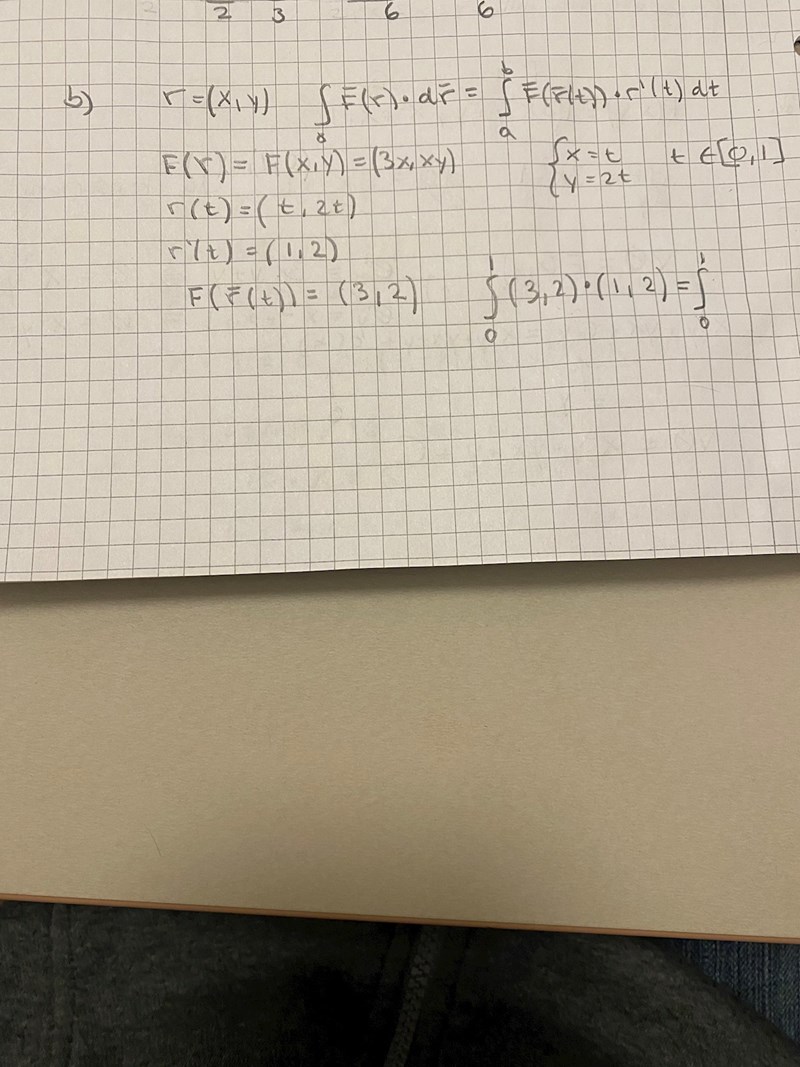 2 3 6 6
b) r=(x,y) ∫γ F̄(r)·dr̄ = ∫ₐᵇ F̄(r̄(t))·r'(t) dt
F(r)= F(x,y)=(3x,xy) {x=t t ∈[0,1]
{y=2t
r(t)=(t,2t)
r'(t)=(1,2)
F(r̄(t))= (3,2) ∫₀¹(3,2)·(1,2)=∫₀¹